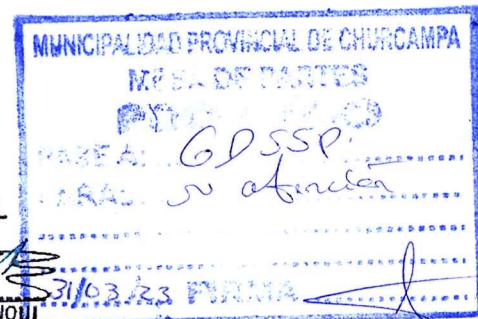 MUNICIPALIDAD PROVINCIAL DE CHURCAMPA
MESA DE PARTES
PASE A: GDSSP.
PARA: su atención
31/03/23 FIRMA